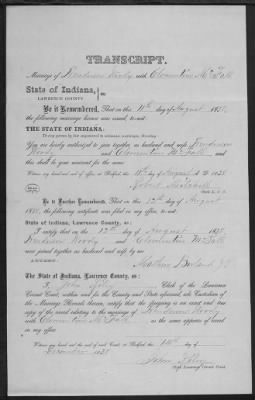 TRANSCRIPT.
Marriage of Henderson Woody with Clementine McFall
State of Indiana,
LAWRENCE COUNTY
Be it Remembered, That on the 11th day of August 1838
the following marriage license was issued, to-wit:
THE STATE OF INDIANA:
To any person by law empowered to solemnize marriages, Greeting:
You are hereby authorized to join together as husband and wife Henderson
Woody and Clementine McFall and
this shall be your warrant for the same.
Witness, my hand and official seal, at Bedford, this 11th day of August A. D. 1838
Be it Further Remembered, That on the 12th day of August
1838, the following certificate was filed in my office, to-wit:
State of Indiana, Lawrence County, ss:
I certify that on the 12th day of August 1838
Henderson Woody and Clementine McFall
were joined together as husband and wife by me
ATTEST:
The State of Indiana, Lawrence County, ss:
I, John Clerk of the Lawrence
Circuit Court, within and for the County and State aforesaid, and Custodian of
the Marriage Records therein, certify that the foregoing is an exact and true
copy of the record relating to the marriage of Henderson Woody
with Clementine McFall as the same appears of record
in my office.
Witness my hand and the seal of said Court, at Bedford, this
John
Clerk Lawrence Circuit Court.